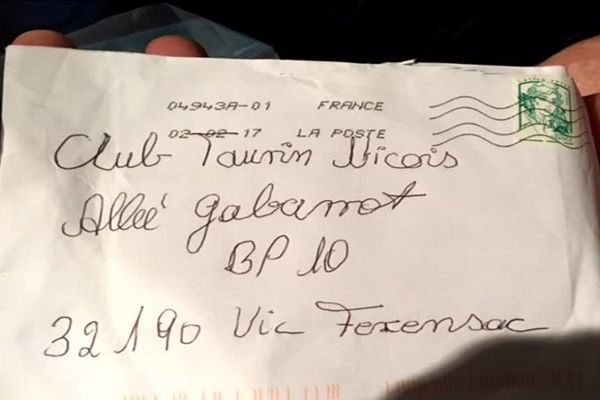 04943A-01 FRANCE
02-02-17 LA POSTE
Club Taurin Vicois
Alleé Gabarrot
BP 10
32190 Vic Fezensac